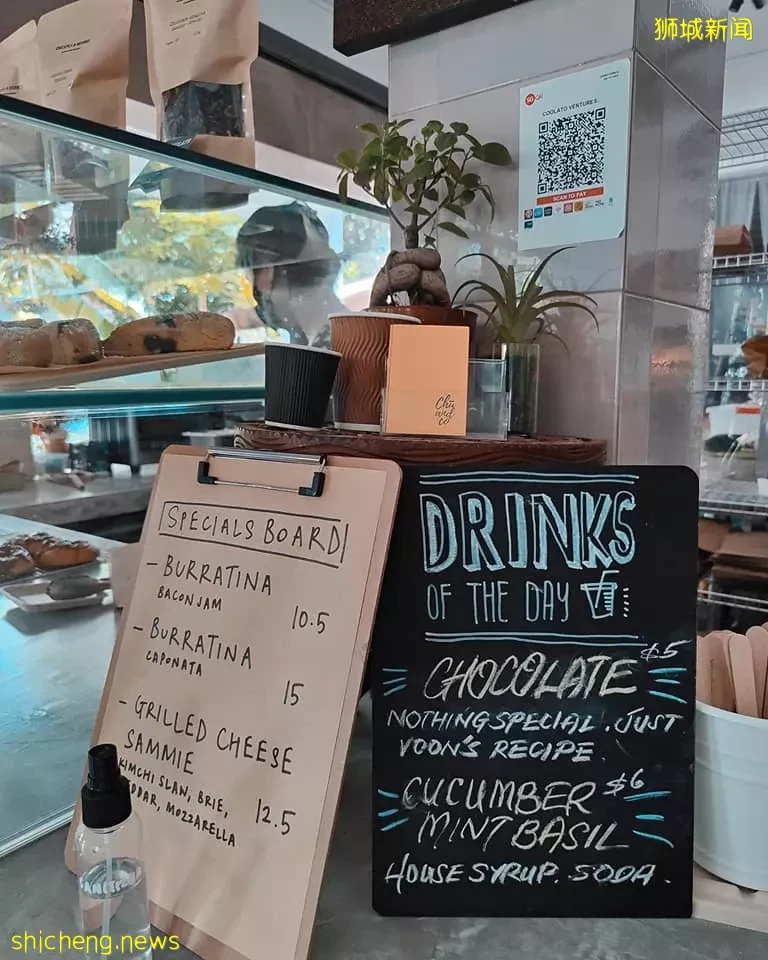 狮城新闻
SGQR
COOLATO VENTURES
SCAN TO PAY
Chū
and
co
SPECIALS BOARD
- BURRATINA
BACON JAM
10.5
- BURRATINA
CAPONATA
15
- GRILLED CHEESE
SAMMIE
KIMCHI SLAW, BRIE,
DDAR, MOZZARELLA
12.5
DRINKS
OF THE DAY
$5
CHOCOLATE
NOTHING SPECIAL. JUST
YOON'S RECIPE.
CUCUMBER $6
MINT BASIL
HOUSE SYRUP. SODA.
shicheng.news